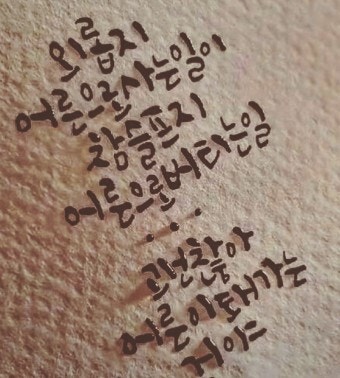 외롭지
어른으로 사는 일이
참 슬프지
어른으로 버티는 일
...
괜찮아
어른이 돼가는
거야